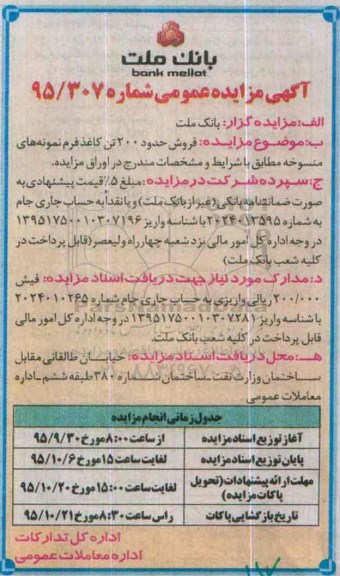 بانک ملت
bank mellat
آگهی مزایده عمومی شماره ۹۵/۳۰۷
الف: مزایده گزار: بانک ملت
ب: موضوع مزایده: فروش حدود ۲۰۰ تن کاغذ فرم نمونه‌های
منسوخه مطابق با شرایط و مشخصات مندرج در اوراق مزایده.
ج: سپرده شرکت در مزایده: مبلغ ۵٪ قیمت پیشنهادی به
صورت ضمانتنامه بانکی (غیر از بانک ملت) و یا نقداً به حساب جاری جام
به شماره ۲۰۲۴۰۱۳۵۹۵ با شناسه واریز ۱۳۹۵۱۷۵۰۰۱۰۳۰۷۱۹۶
در وجه اداره کل امور مالی نزد شعبه چهارراه ولیعصر (قابل پرداخت در
کلیه شعب بانک ملت)
د: مدارک مورد نیاز جهت دریافت اسناد مزایده: فیش
۲۰۰/۰۰۰ ریالی واریزی به حساب جاری جام شماره ۲۰۲۴۰۱۰۲۶۵
با شناسه واریز ۱۳۹۵۱۷۵۰۰۱۰۳۰۷۲۸۱ در وجه اداره کل امور مالی
قابل پرداخت در کلیه شعب بانک ملت.
هـ: محل دریافت اسناد مزایده: خیابان طالقانی مقابل
ساختمان وزارت نفت ـ ساختمان شماره ۳۸۰ طبقه ششم ـ اداره
معاملات عمومی
جدول زمانی انجام مزایده
آغاز توزیع اسناد مزایده از ساعت ۸:۰۰ مورخ ۹۵/۹/۳۰
پایان توزیع اسناد مزایده لغایت ساعت ۱۵ مورخ ۹۵/۱۰/۶
مهلت ارائه پیشنهادات (تحویل پاکات مزایده) لغایت ساعت ۱۵:۰۰ مورخ ۹۵/۱۰/۲۰
تاریخ بازگشایی پاکات راس ساعت ۸:۳۰ مورخ ۹۵/۱۰/۲۱
اداره کل تدارکات
اداره معاملات عمومی